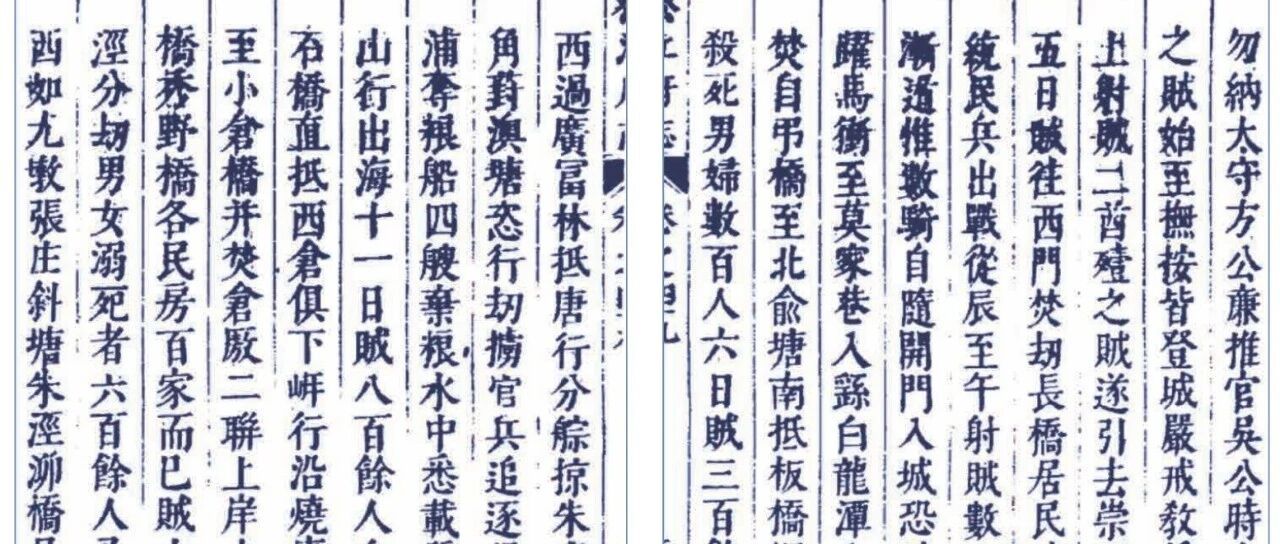 勿納太守方公廉推官吳公時
之賊始至撫按皆登城嚴戒敎
上射賊二酋殪之賊遂引去崇
五日賊往西門焚刼長橋居民
統民兵出戰從辰至午射賊數
漸過惟數騎自隨開門入城恐
躍馬衝至莫家巷入繇白龍潭
焚自弔橋至北俞塘南抵板橋
殺死男婦數百人六日賊三百
卷之四九
西過廣冨林抵唐行分䑸掠朱
角葑澳塘恣行刼擄官兵追逐
浦奪粮船四艘棄粮水中悉載
山行出海十一日賊八百餘人
石橋直抵西倉俱下㟁行沿燒
至小倉橋并焚倉厫二聯上岸
橋秀野橋各民房百家而已賊
涇分刼男女溺死者六百餘人
西如尤墩張庄斜塘朱涇泖橋